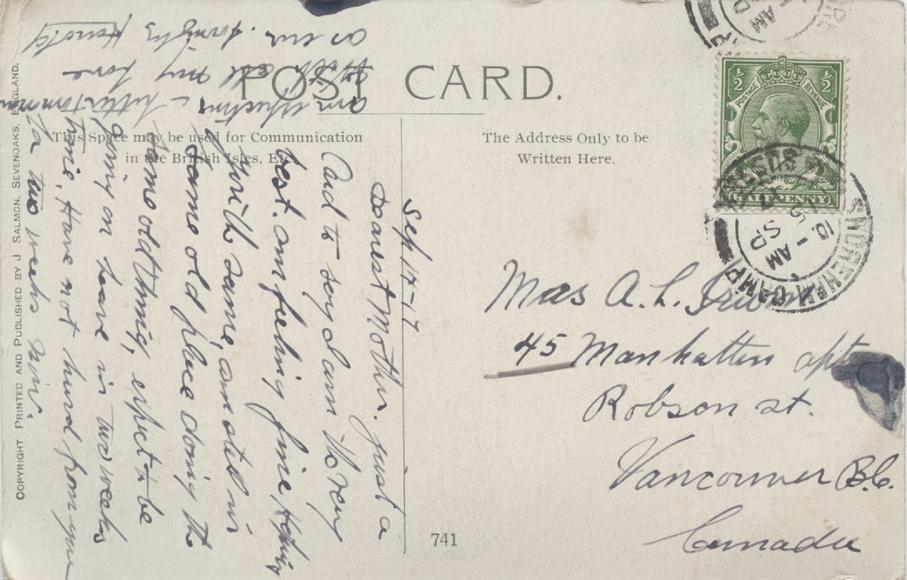 POST CARD.
This Space may be used for Communication
in the British Isles, Etc.
The Address Only to be
Written Here.
COPYRIGHT PRINTED AND PUBLISHED BY J SALMON, SEVENOAKS, ENGLAND.
741
½ ½
POSTAGE REVENUE
HALFPENNY
SHOREHAM CAMP
SUSSEX
10. - AM
SP
Sep 14-17
Dearest Mother. just a
Card to say I am the very
best. am feeling fine, hoping
you the same, am still in
same old place doing the
same old thing, expect to be
going on leave in two weeks
time. Have not heard from you
for two weeks now.
am expecting a letter
with all my love
as ever.
Harold
Mrs A. L.
45 Manhattan apts
Robson st.
Vancouver B.C.
Canada